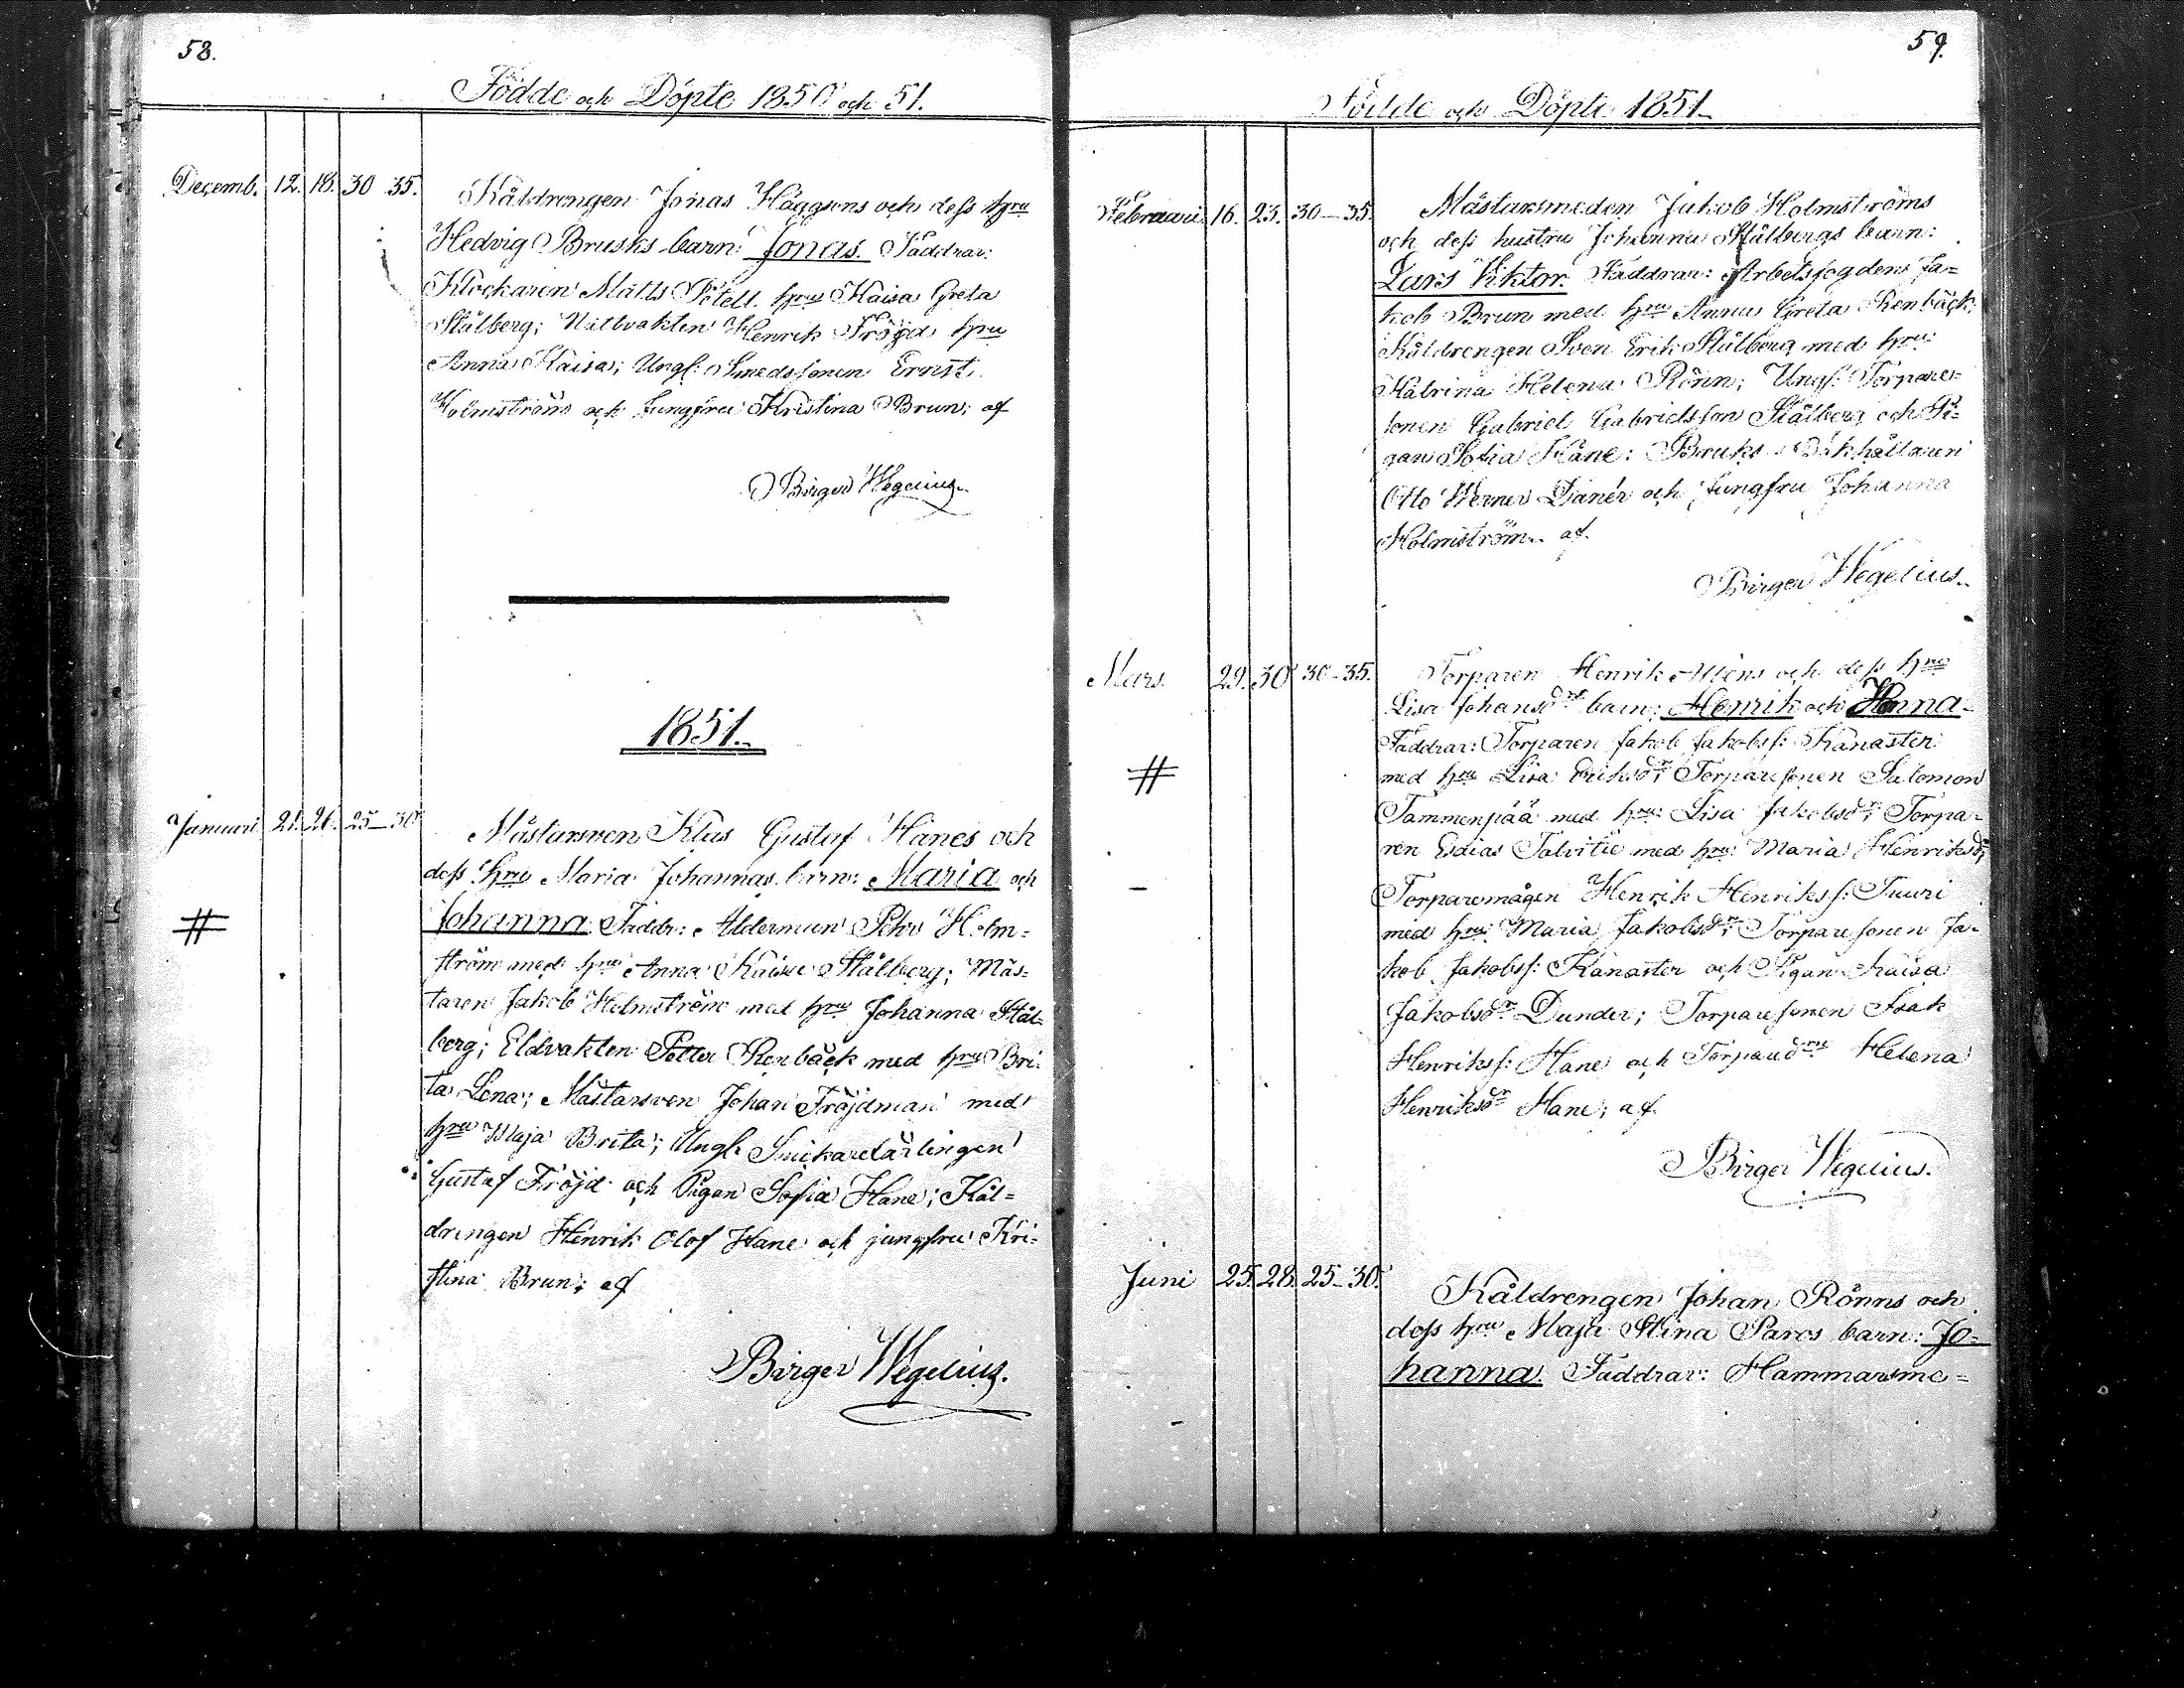 58.
Födde och Döpte 1850 och 51.
Decemb. 12. 18. 30 35.
Kåldrengen Jonas Häggsons och dess hru
Hedvig Brusks barn: Jonas. Faddrar:
Klockaren Matts hru Kaisa Greta
Stålberg; Nattvakten Henrik Fröjd hru
Anna Kaisa; Ungl: Smedssonen Ernst
Holmström och Jungfru Kristina Brun; af
Birger Wegelius.
1851.
Januari 21. 26. 25–30
Mästarsven Klas Gustaf Hanes och
dess hru Maria Johannas barn: Maria och
Johanna. Faddr: Alderman Pehr Holm=
ström med hru Anna Kaisa Stålberg; Mäs=
taren Jakob Holmström med hru Johanna Stål=
berg; Eldvakten Petter Renbäck med hru Bri=
ta Lena; Mästarsven Johan Fröjdman med
hru Maja Brita; Ungl: Snickarelärlingen
Gustaf Fröjd och Pigan Sofia Hane; Kål=
drengen Henrik Olof Hane och jungfru Kri=
stina Brun; af
Birger Wegelius.
#
59.
Födde och Döpte 1851.
Februari 16. 23. 30–35.
Mästarsmeden Jakob Holmströms
och dess hustru Johanna Stålbergs barn:
Lars Viktor. Faddrar: Arbetsfogden Ja=
kob Brun med hru Anna Greta Renbäck;
Kåldrengen Sven Erik Stålberg med hru
Katrina Helena Rönn; Ungl: Torpare=
sonen Gabriel Gabrielsson Stålberg och Pi=
gan Sofia Hane: Bruks Bokhållaren
Otto Werner Lianér och Jungfru Johanna
Holmström. af
Birger Wegelius.
Mars. 29. 30 30–35.
Torparen Henrik och dess hru
Lisa Johansdr barn: Henrik och Hanna.
Faddrar: Torparen Jakob Jakobss: Kanaster
med hru Lisa Eriksdr; Torparesonen Salomon
Tammenpää med hru: Lisa Jakobsdr; Torpa=
ren Esaias Talvitie med hru: Maria Henriksdr;
Torparemågen Henrik Henrikss: Tuuri
med hru: Maria Jakobsdr; Torparesonen Ja=
kob Jakobss: Kanaster och Pigan Kaisa
Jakobsdr Dunder; Torparesonen Isak
Henrikss: Hane och Torparedrn Helena
Henriksdr Hane; af
Birger Wegelius.
#
Juni 25. 28. 25–30.
Kåldrengen Johan Rönns och
dess hru Maja Stina Paros barn: Jo=
hanna. Faddrar: Hammarsme=